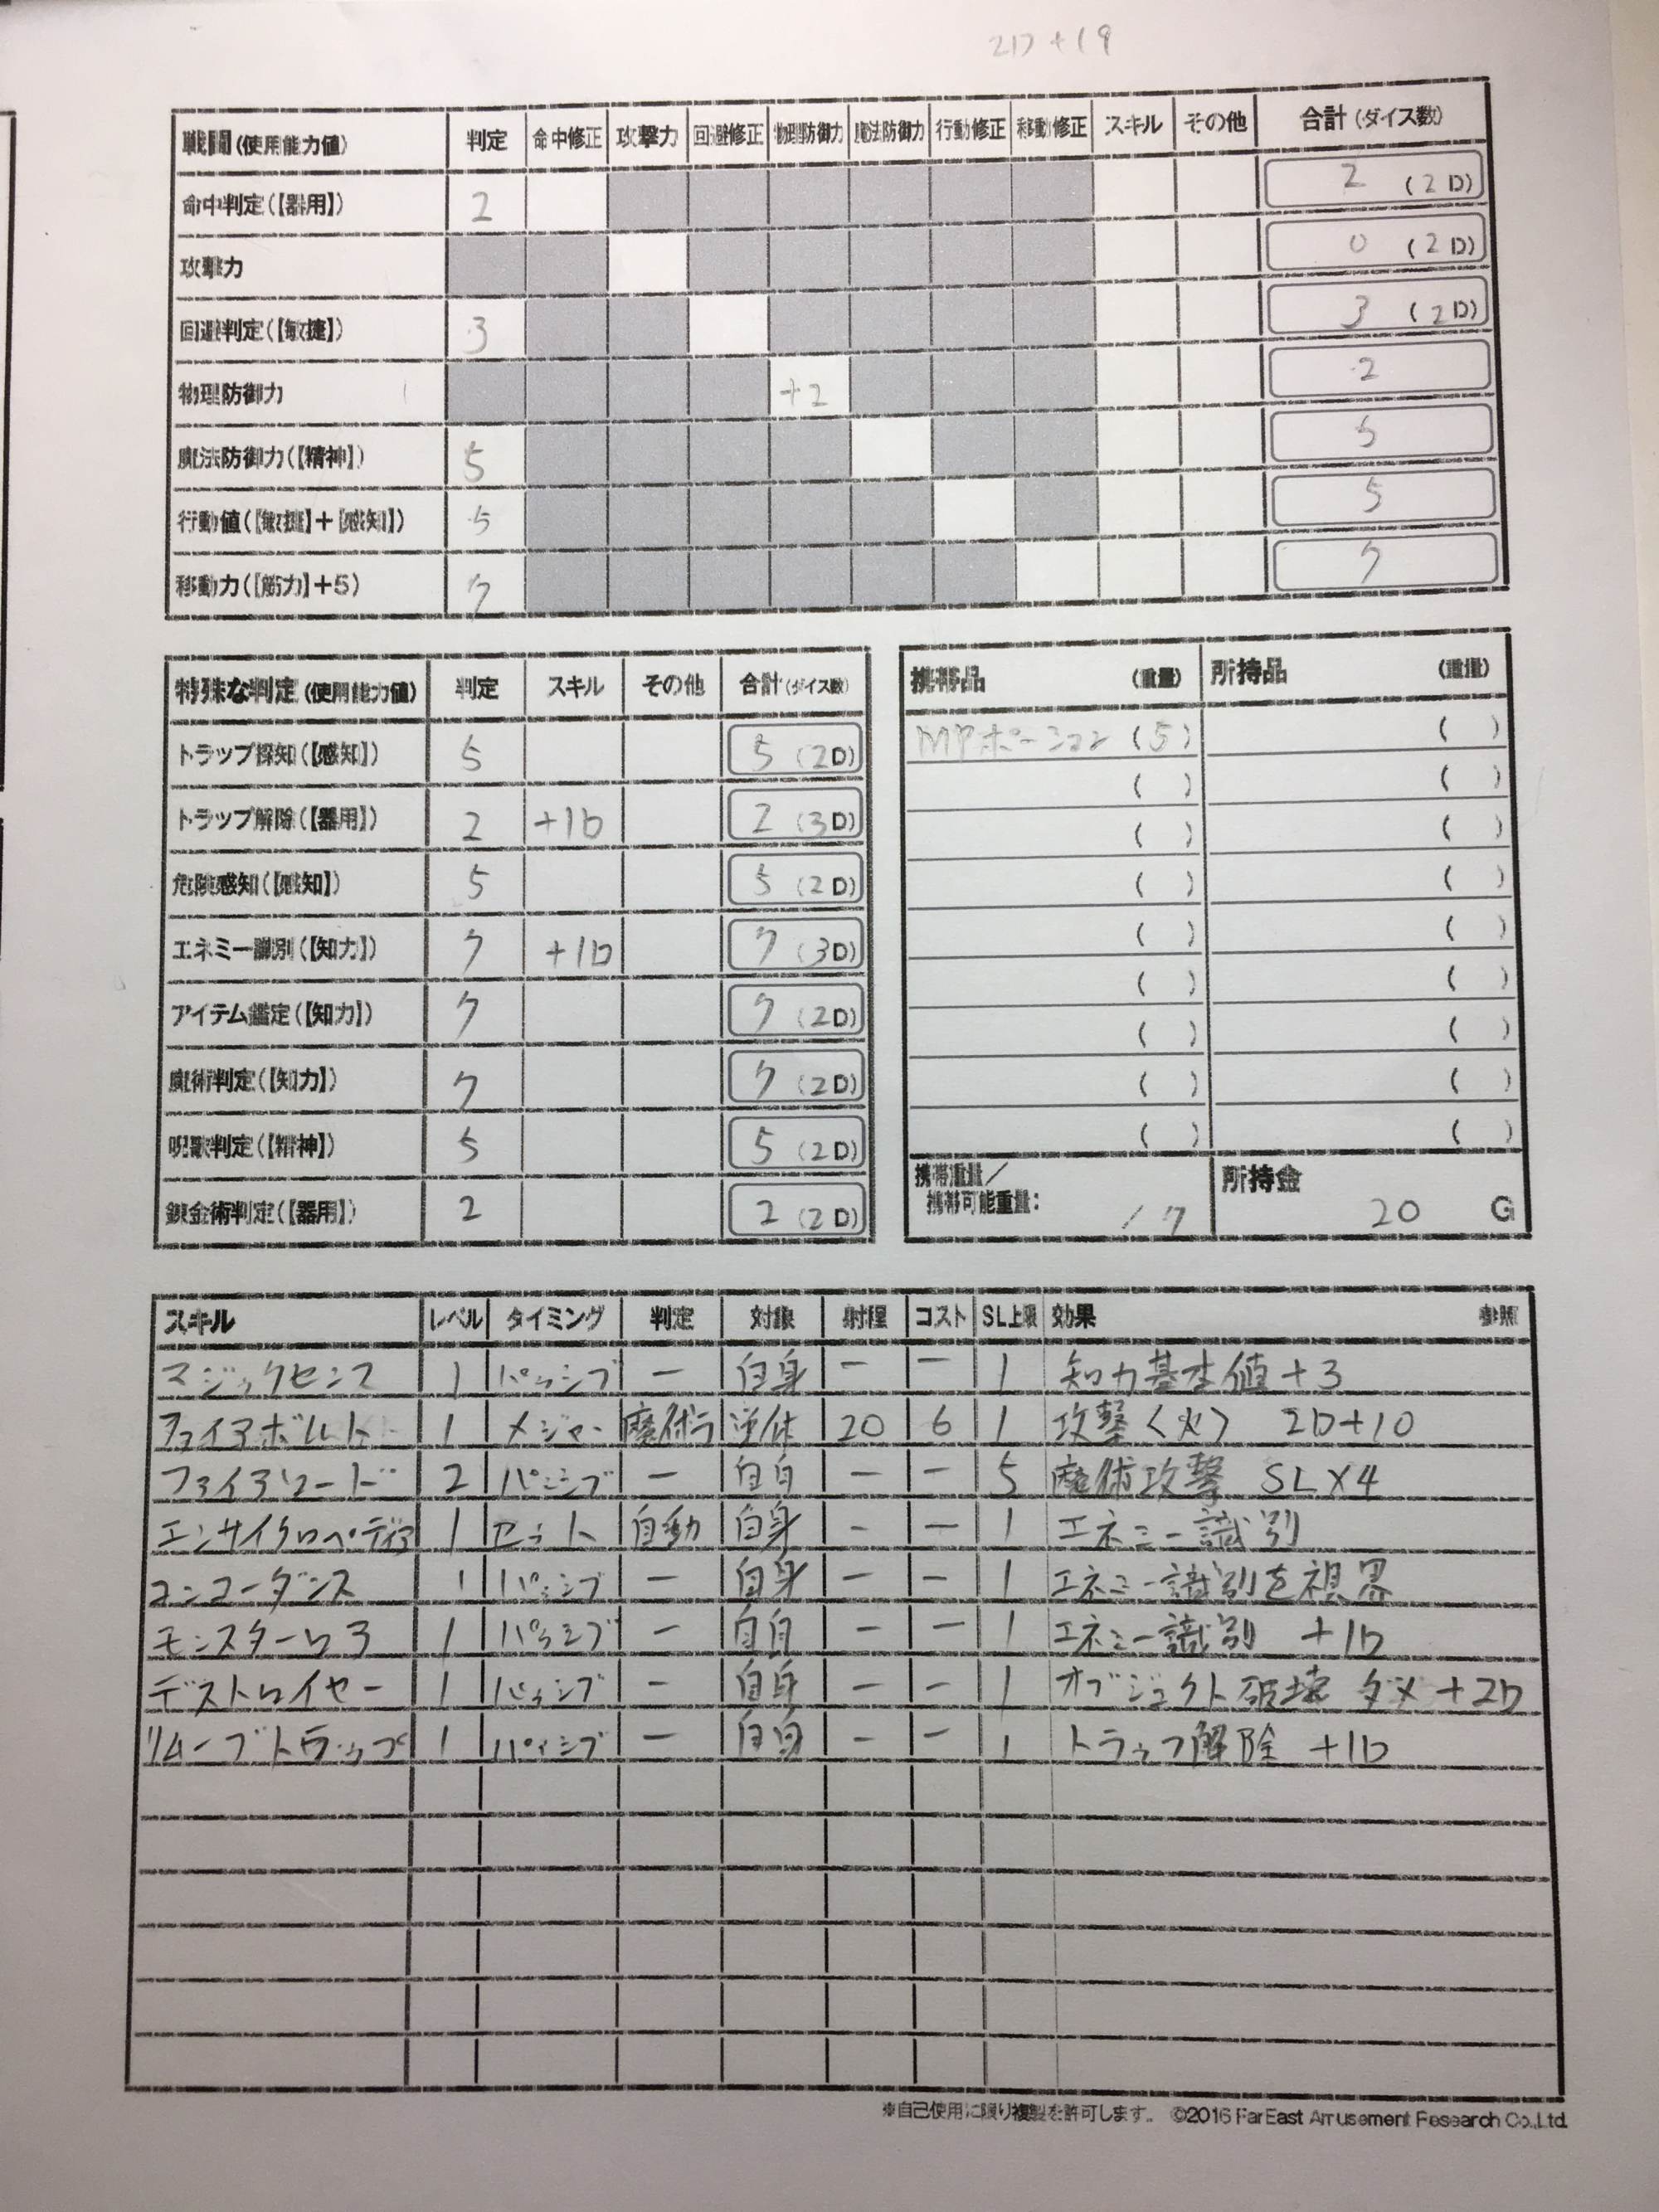 2D+19
戦闘(使用能力値) 判定 命中修正 攻撃力 回避修正 物理防御力 魔法防御力 行動修正 移動修正 スキル その他 合計(ダイス数)
命中判定(【器用】) 2 2 (2D)
攻撃力 0 (2D)
回避判定(【敏捷】) 3 3 (2D)
物理防御力 +2 2
魔法防御力(【精神】) 5 5
行動値(【敏捷】+【感知】) 5 5
移動力(【筋力】+5) 7 7
特殊な判定(使用能力値) 判定 スキル その他 合計(ダイス数)
トラップ探知(【感知】) 5 5 (2D)
トラップ解除(【器用】) 2 +1D 2 (3D)
危険感知(【感知】) 5 5 (2D)
エネミー識別(【知力】) 7 +1D 7 (3D)
アイテム鑑定(【知力】) 7 7 (2D)
魔術判定(【知力】) 7 7 (2D)
呪歌判定(【精神】) 5 5 (2D)
錬金術判定(【器用】) 2 2 (2D)
携帯品 (重量) 所持品 (重量)
MPポーション (5) ( )
( ) ( )
( ) ( )
( ) ( )
( ) ( )
( ) ( )
( ) ( )
( ) ( )
( ) ( )
携帯重量/ 所持金
携帯可能重量: / 7 20 G
スキル レベル タイミング 判定 対象 射程 コスト SL上限 効果 参照
マジックセンス 1 パッシブ ー 自身 ー ー 1 知力基本値+3
ファイアボルト 1 メジャー 魔術 単体 20 6 1 攻撃〈火〉 2D+10
ファイアロード 2 パッシブ ー 自身 ー ー 5 魔術攻撃 SL×4
エンサイクロペディア 1 セット 自動 自身 ー ー 1 エネミー識別
コンコーダンス 1 パッシブ ー 自身 ー ー 1 エネミー識別を視界
モンスターロア 1 パッシブ ー 自身 ー ー 1 エネミー識別 +1D
デストロイヤー 1 パッシブ ー 自身 ー ー 1 オブジェクト破壊 ダメ+2D
リムーブトラップ 1 パッシブ ー 自身 ー ー 1 トラップ解除 +1D
※自己使用に限り複製を許可します。 ©2016 FarEast Amusement Research Co.,Ltd.